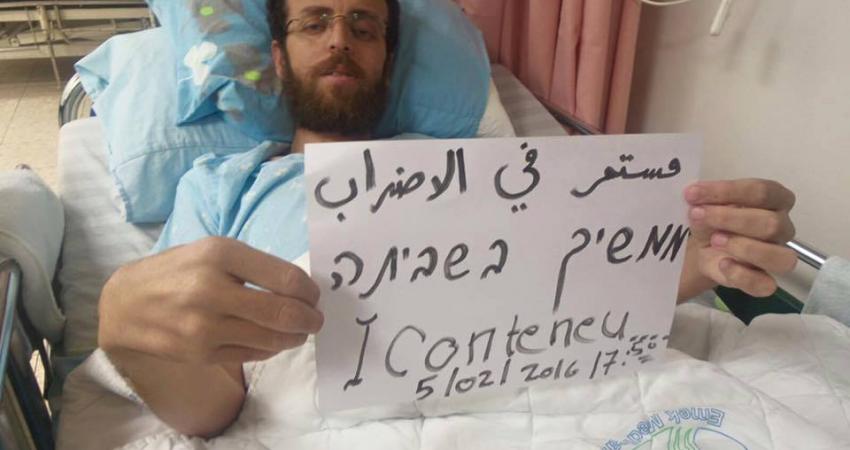 مستمر في الاضراب
ממשיך בשביתה
I Conteneu
5/02/2016 17:50
Emek